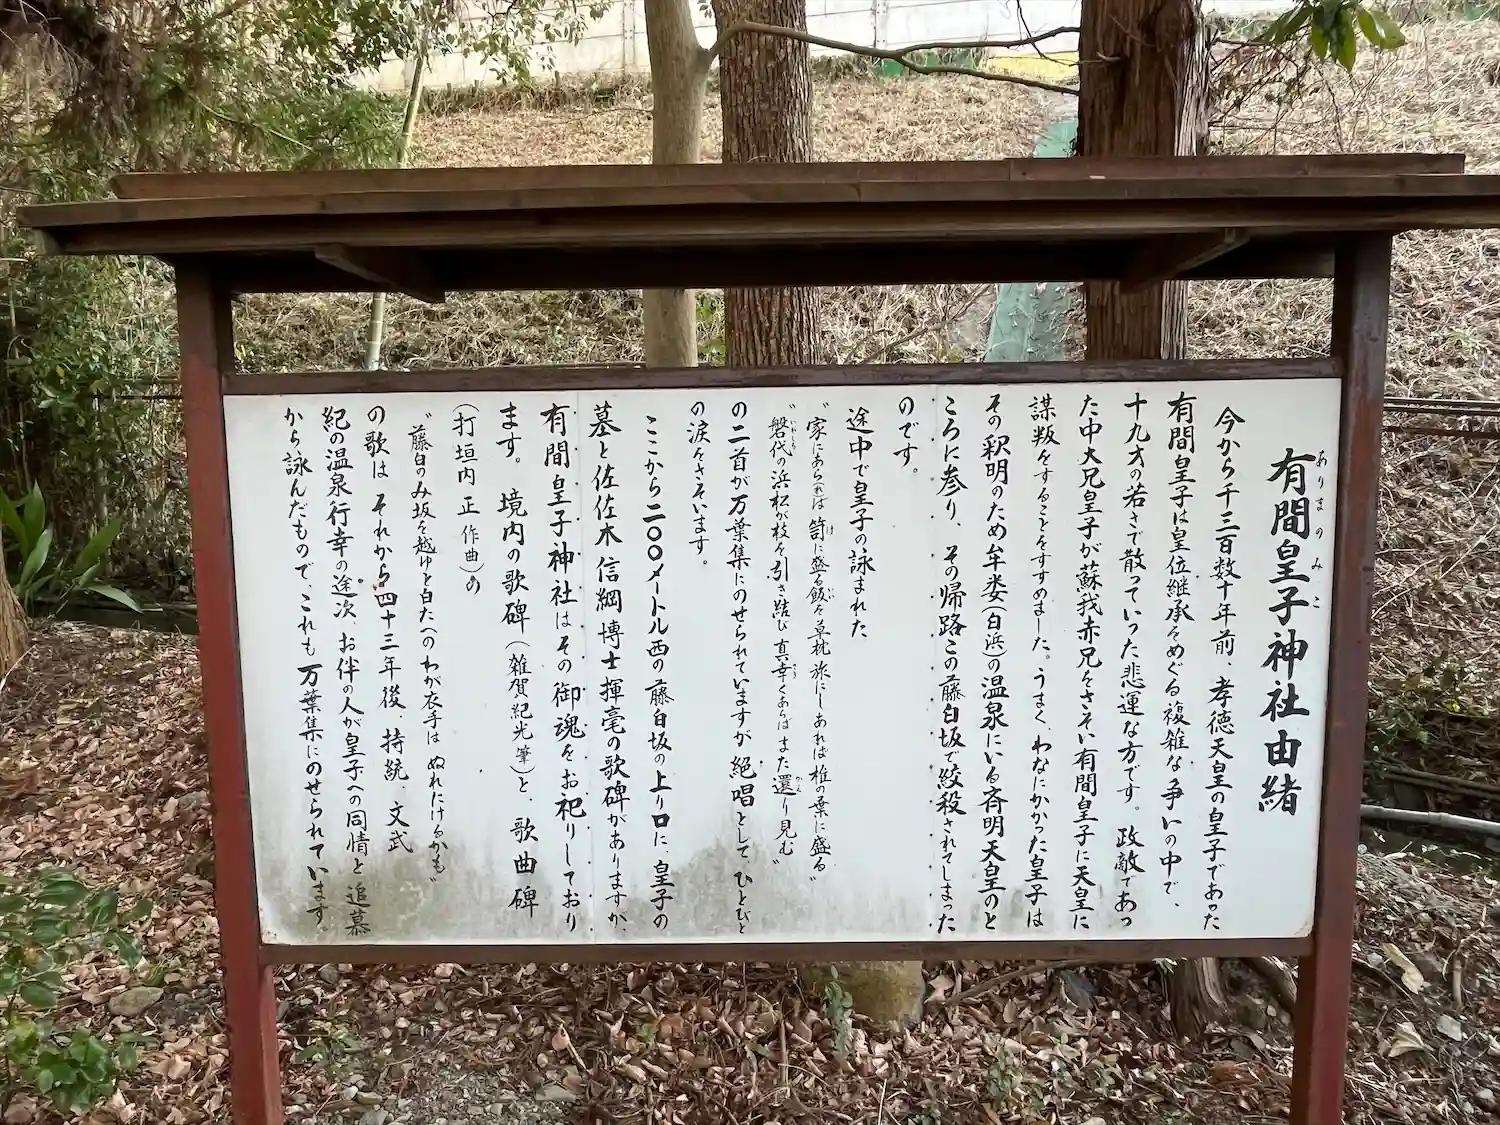 有間皇子神社由緒
ありまのみこ
今から千三百数十年前、孝徳天皇の皇子であった
有間皇子は皇位継承をめぐる複雑な争いの中で、
十九才の若さで散っていった悲運な方です。政敵であっ
た中大兄皇子が蘇我赤兄をさそい有間皇子に天皇に
謀叛をすることをすすめました。うまく、わなにかかった皇子は
その釈明のため牟婁(白浜)の温泉にいる斉明天皇のと
ころに参り、その帰路この藤白坂で絞殺されてしまった
のです。
途中で皇子の詠まれた
〝家にあら(れ)ば笥に盛る飯を草枕旅にしあれば椎の葉に盛る〟
〝磐代の浜松が枝を引き結び真幸くあらばまた還り見む〟
の二首が万葉集にのせられていますが絶唱としてひとびと
の涙をさそいます。
ここから二〇〇メートル西の藤白坂の上り口に、皇子の
墓と佐佐木信綱博士揮毫の歌碑がありますが、
有間皇子神社はその御魂をお祀りしており
ます。境内の歌碑(雑賀紀光筆)と、歌曲碑
(打垣内正作曲)の
〝藤白のみ坂を越ゆと白たへのわが衣手はぬれにけるかも〟
の歌はそれから四十三年後、持統、文武
紀の温泉行幸の途次お伴の人が皇子への同情と追慕
から詠んだもので、これも万葉集にのせられています。